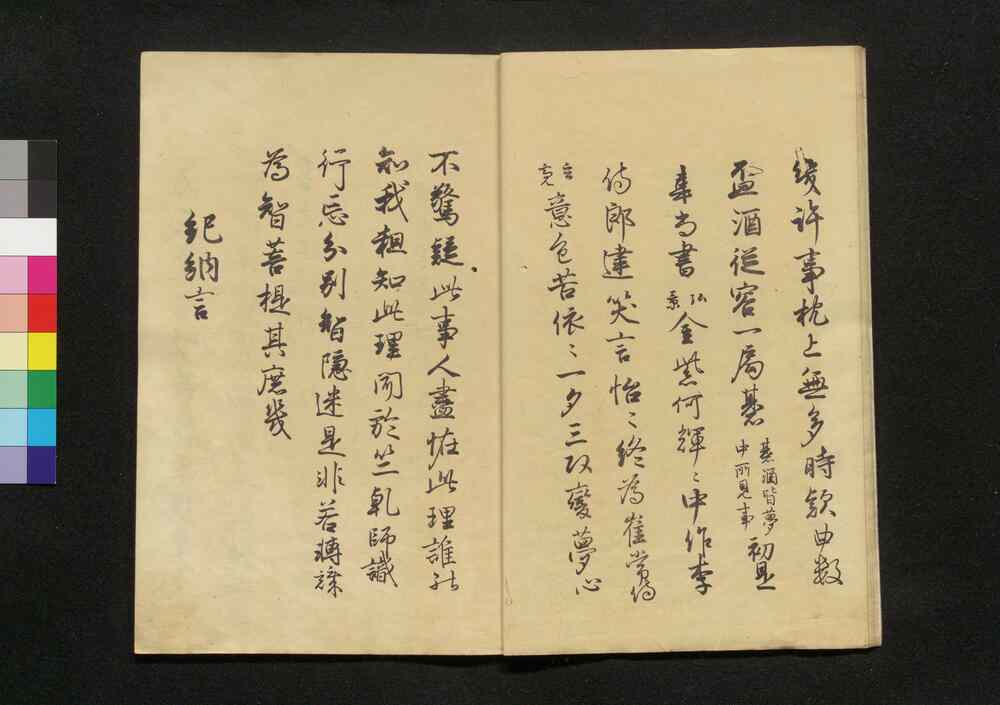 幾許事枕上無多時款曲数
盃酒従容一局碁
碁酒皆夢
中所見事
初見
韋尚書
弘
景
金紫何輝〻中作李
侍郎建笑言怡〻終為崔常侍
玄
亮
意色苦依〻一夕三改變夢心
不驚疑此事人盡恠此理誰能
知我粗知此理聞於竺乾師識
行忘分別智隠迷是非若轉識
為智菩提其庶幾
紀納言